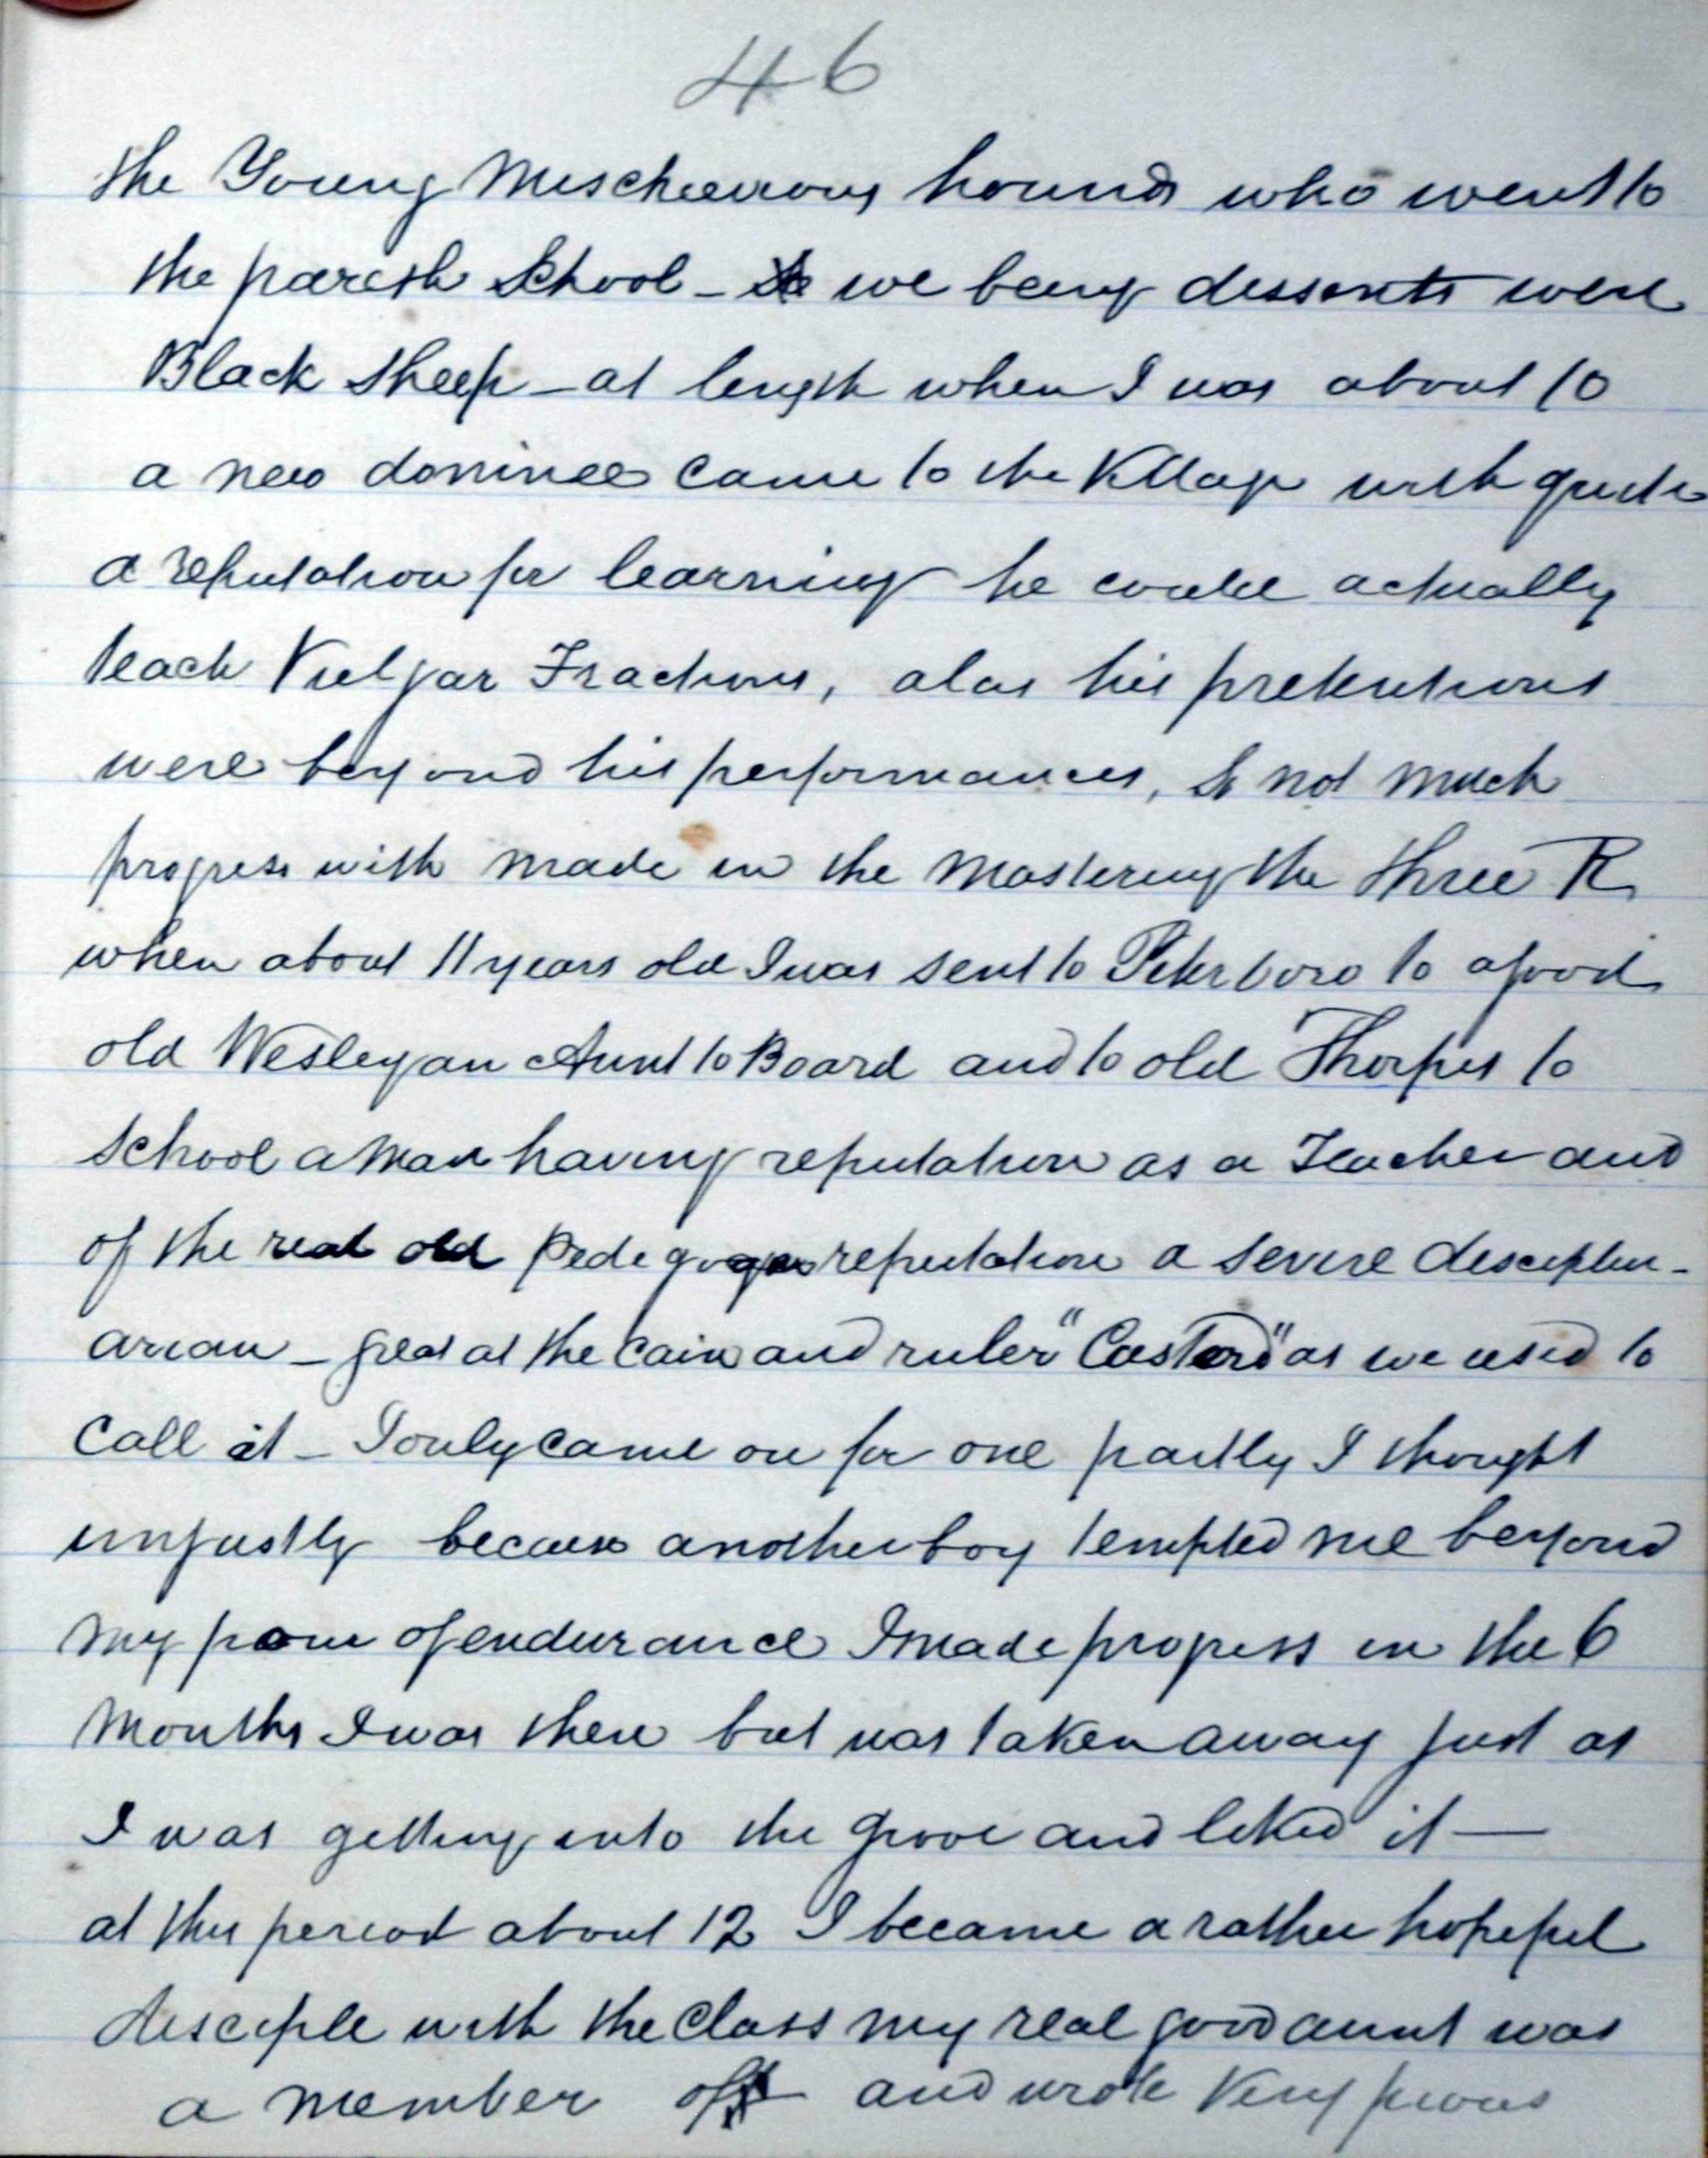 46
the Young Mischeevous hounds who went to
the parish School - we being dissents were
Black Sheep - at length when I was about 10
a new dominee came to the Village with quite
a reputation for learning he could actually
teach Vulgar Fractions, alas his pretentions
were beyond his performances, & not much
progress with made in the mastering the three R
when about 11 years old I was sent to Peterboro to a good
old Wesleyan Aunt to Board and to old Thorpes to
School a man having reputation as a Teacher and
of the real old reputation a severe disciplin-
arian - great at the Cain and ruler "Custerd" as we used to
Call it - I only came on for one partly I thought
unjustly because another boy tempted me beyond
my power of endurance I made progress in the 6
Months I was there but was taken away just as
I was getting into the groove and liked it —
at this period about 12 I became a rather hopeful
disciple with the Class my real good aunt was
a member off and wrote Very pious